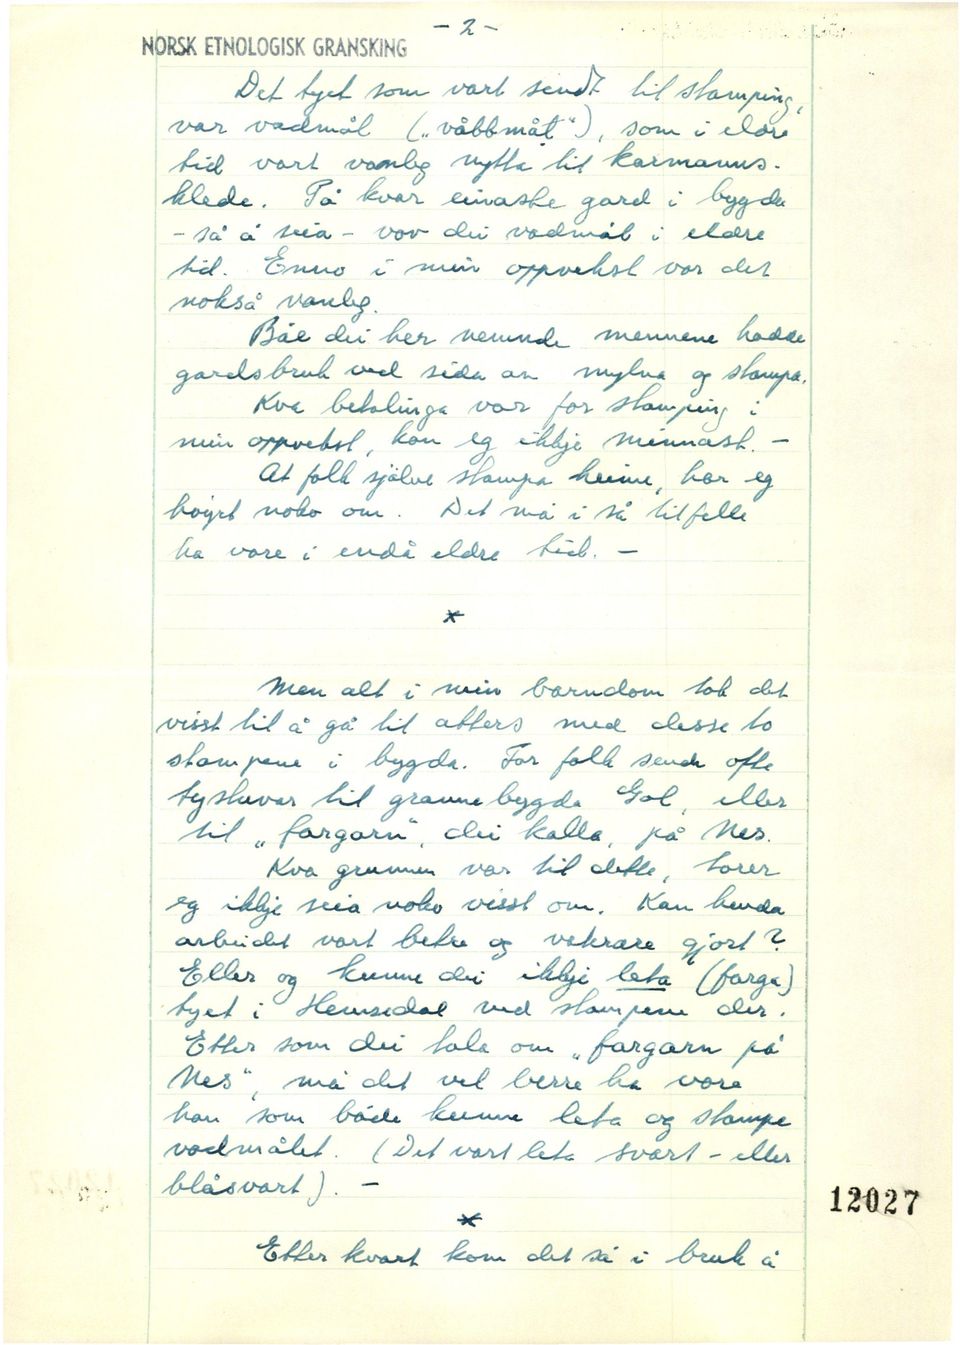 - 2 -
NORSK ETNOLOGISK GRANSKING
Det tyet som vart sendt til stamping,
var vadmål („våbbmål"), som i eldre
tid vart vanleg nytta til karmanns-
klede. På kvar einaste gard i bygda
- så å seia - vov dei vadmål i eldre
tid. Enno i min oppvekst var det
nokså vanleg.
Båe dei her nemnde mennene hadde
gardsbruk ved sida av mylna og stampa.
Kva betalinga var for stamping i
min oppvekst, kan eg ikkje minnast. -
At folk sjølve stampa heime, har eg
høyrt noko om. Det må i så tilfelle
ha vore i endå eldre tid. -
*
Men alt i min barndom tok det
visst til å gå til atters med desse to
stampene i bygda. For folk sende ofte
tystuvar til grannebygda Gol, eller
til „fargarn", dei kalla, på Nes.
Kva grunnen var til dette, torer
eg ikkje seia noko visst om. Kan henda
arbeidet vart betre og vakrare gjort?
Eller og kunne dei ikkje leta (farga)
tyet i Hemsedal ved stampene der.
Etter som dei tala om „fargarn på
Nes", må det vel berre ha vore
han som både kunne leta og stampe
vadmålet. (Det vart leta svart - eller
blåsvart). -
12027
*
Etter kvart kom det så i bruk å